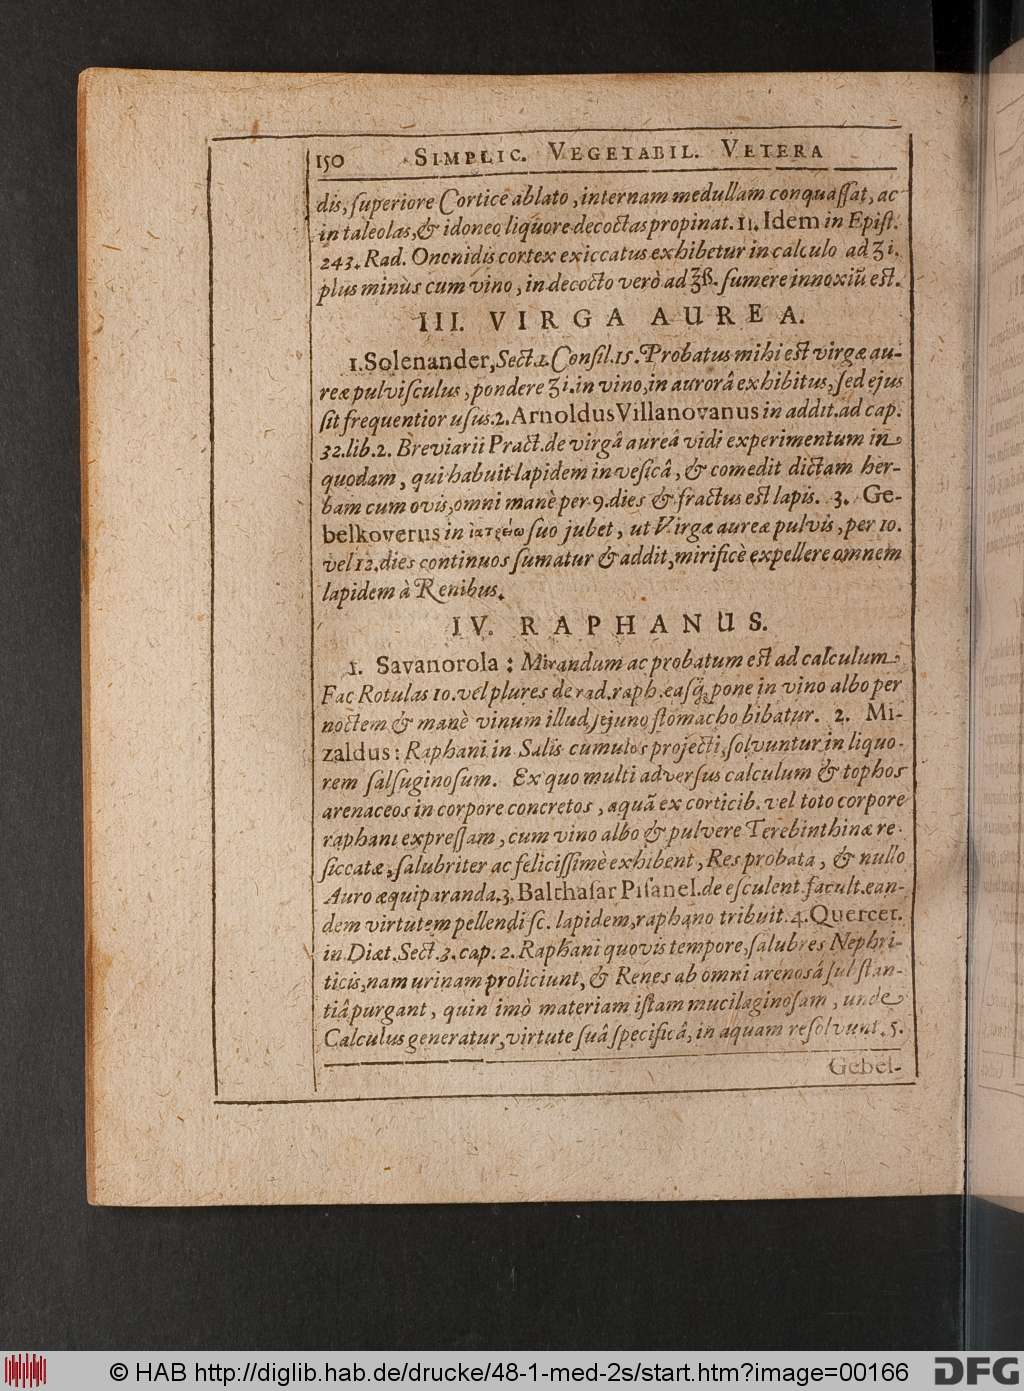 150 SIMPLIC. VEGETABIL. VETERA
dis, ſuperiore Cortice ablato, internam medullam conquaſſat, ac
in taleolas, & idoneo liquore decoctas propinat. 11. Idem in Epiſt.
243. Rad. Ononidis cortex exiccatus exhibetur in calculo ad ʒi.
plus minùs cum vino, in decocto verò ad ʒß. ſumere innoxiũ est.
III. VIRGA AUREA.
1. Solenander, Sect. 1. Conſil. 15. Probatus mihi est virgæ au-
reæ pulviſculus, pondere ʒi. in vino, in aurorâ exhibitus, ſed ejus
ſit frequentior uſus. 2. Arnoldus Villanovanus in addit. ad cap.
32. lib. 2. Breviarii Pract. de virgâ aureâ vidi experimentum in
quodam, qui habuit lapidem in veſicâ, & comedit dictam her-
bam cum ovis, omni manè per 9. dies & fractus est lapis. 3. Ge-
belkoverus in ἰατρείω ſuo jubet, ut Virgæ aureæ pulvis, per 10.
vel 12. dies continuos ſumatur & addit, mirificè expellere omnem
lapidem à Renibus.
IV. RAPHANUS.
1. Savanorola: Mirandum ac probatum est ad calculum
Fac Rotulas 10. vel plures de rad. raph. easq́; pone in vino albo per
noctem & manè vinum illud jejuno ſtomacho bibatur. 2. Mi-
zaldus: Raphani in Salis cumulos projecti, ſolvuntur in liquo-
rem ſalſuginoſum. Ex quo multi adverſus calculum & tophos
arenaceos in corpore concretos, aquã ex corticib. vel toto corpore
raphani expreſſam, cum vino albo & pulvere Terebinthinæ re-
ſiccatæ, ſalubriter ac feliciſſimè exhibent, Res probata, & nullo
Auro æquiparanda. 3. Balthaſar Piſanel. de eſculent. facult. ean-
dem virtutem pellendi ſc. lapidem, raphano tribuit. 4. Quercet.
in Diæt. Sect. 3. cap. 2. Raphani quovis tempore, ſalubres Nephri-
ticis, nam urinam proliciunt, & Renes ab omni arenosâ ſubſtan-
tiâ purgant, quin imò materiam iſtam mucilaginoſam, unde
Calculus generatur, virtute ſuâ ſpecificâ, in aquam reſolvunt. 5.
Gebel-
© HAB http://diglib.hab.de/drucke/48-1-med-2s/start.htm?image=00166
DFG